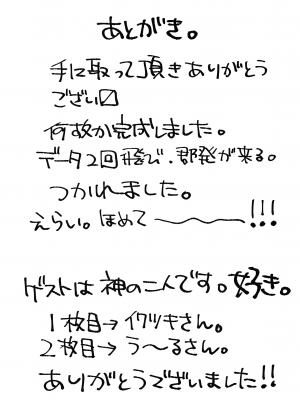 あとがき。
手に取って頂きありがとう
ござい〼
何故か完成しました。
データ2回飛び、群発が来る。
つかれました。
えらい。ほめて〜〜!!!
ゲストは神の二人です。好き。
1枚目→イワツキさん。
2枚目→う〜るさん。
ありがとうございました!!